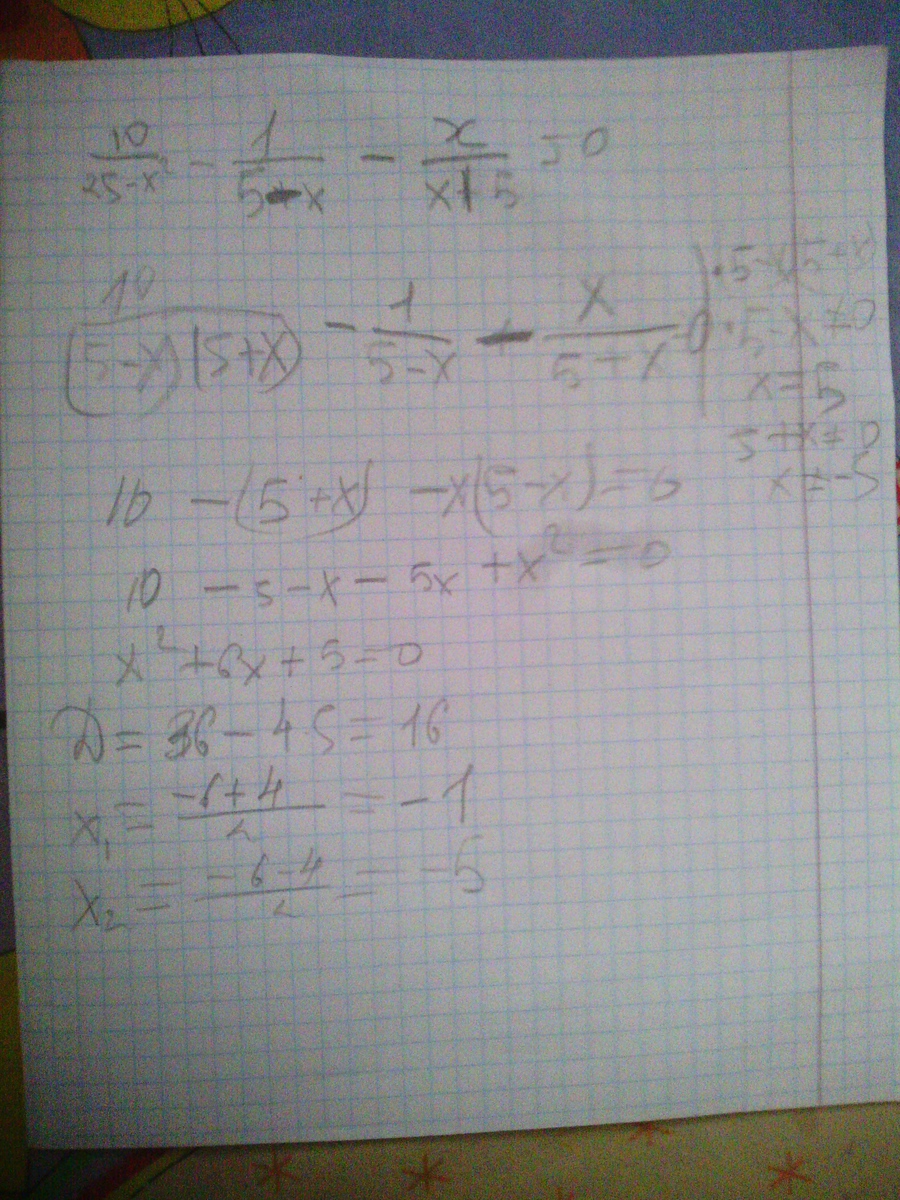 10/(25-x²) - 1/(5-x) - x/(x+5) = 0
10/((5-x)(5+x)) - 1/(5-x) - x/(5+x) = 0 | ·5-x(5+x)
5-x≠0
x=5
5+x≠0
x≠-5
10 -(5+x) -x(5-x)=0
10 -5-x-5x+x²=0
x²+6x+5=0
D=36-4·5=16
x₁=(-6+4)/2=-1
x₂=(-6-4)/2=-5